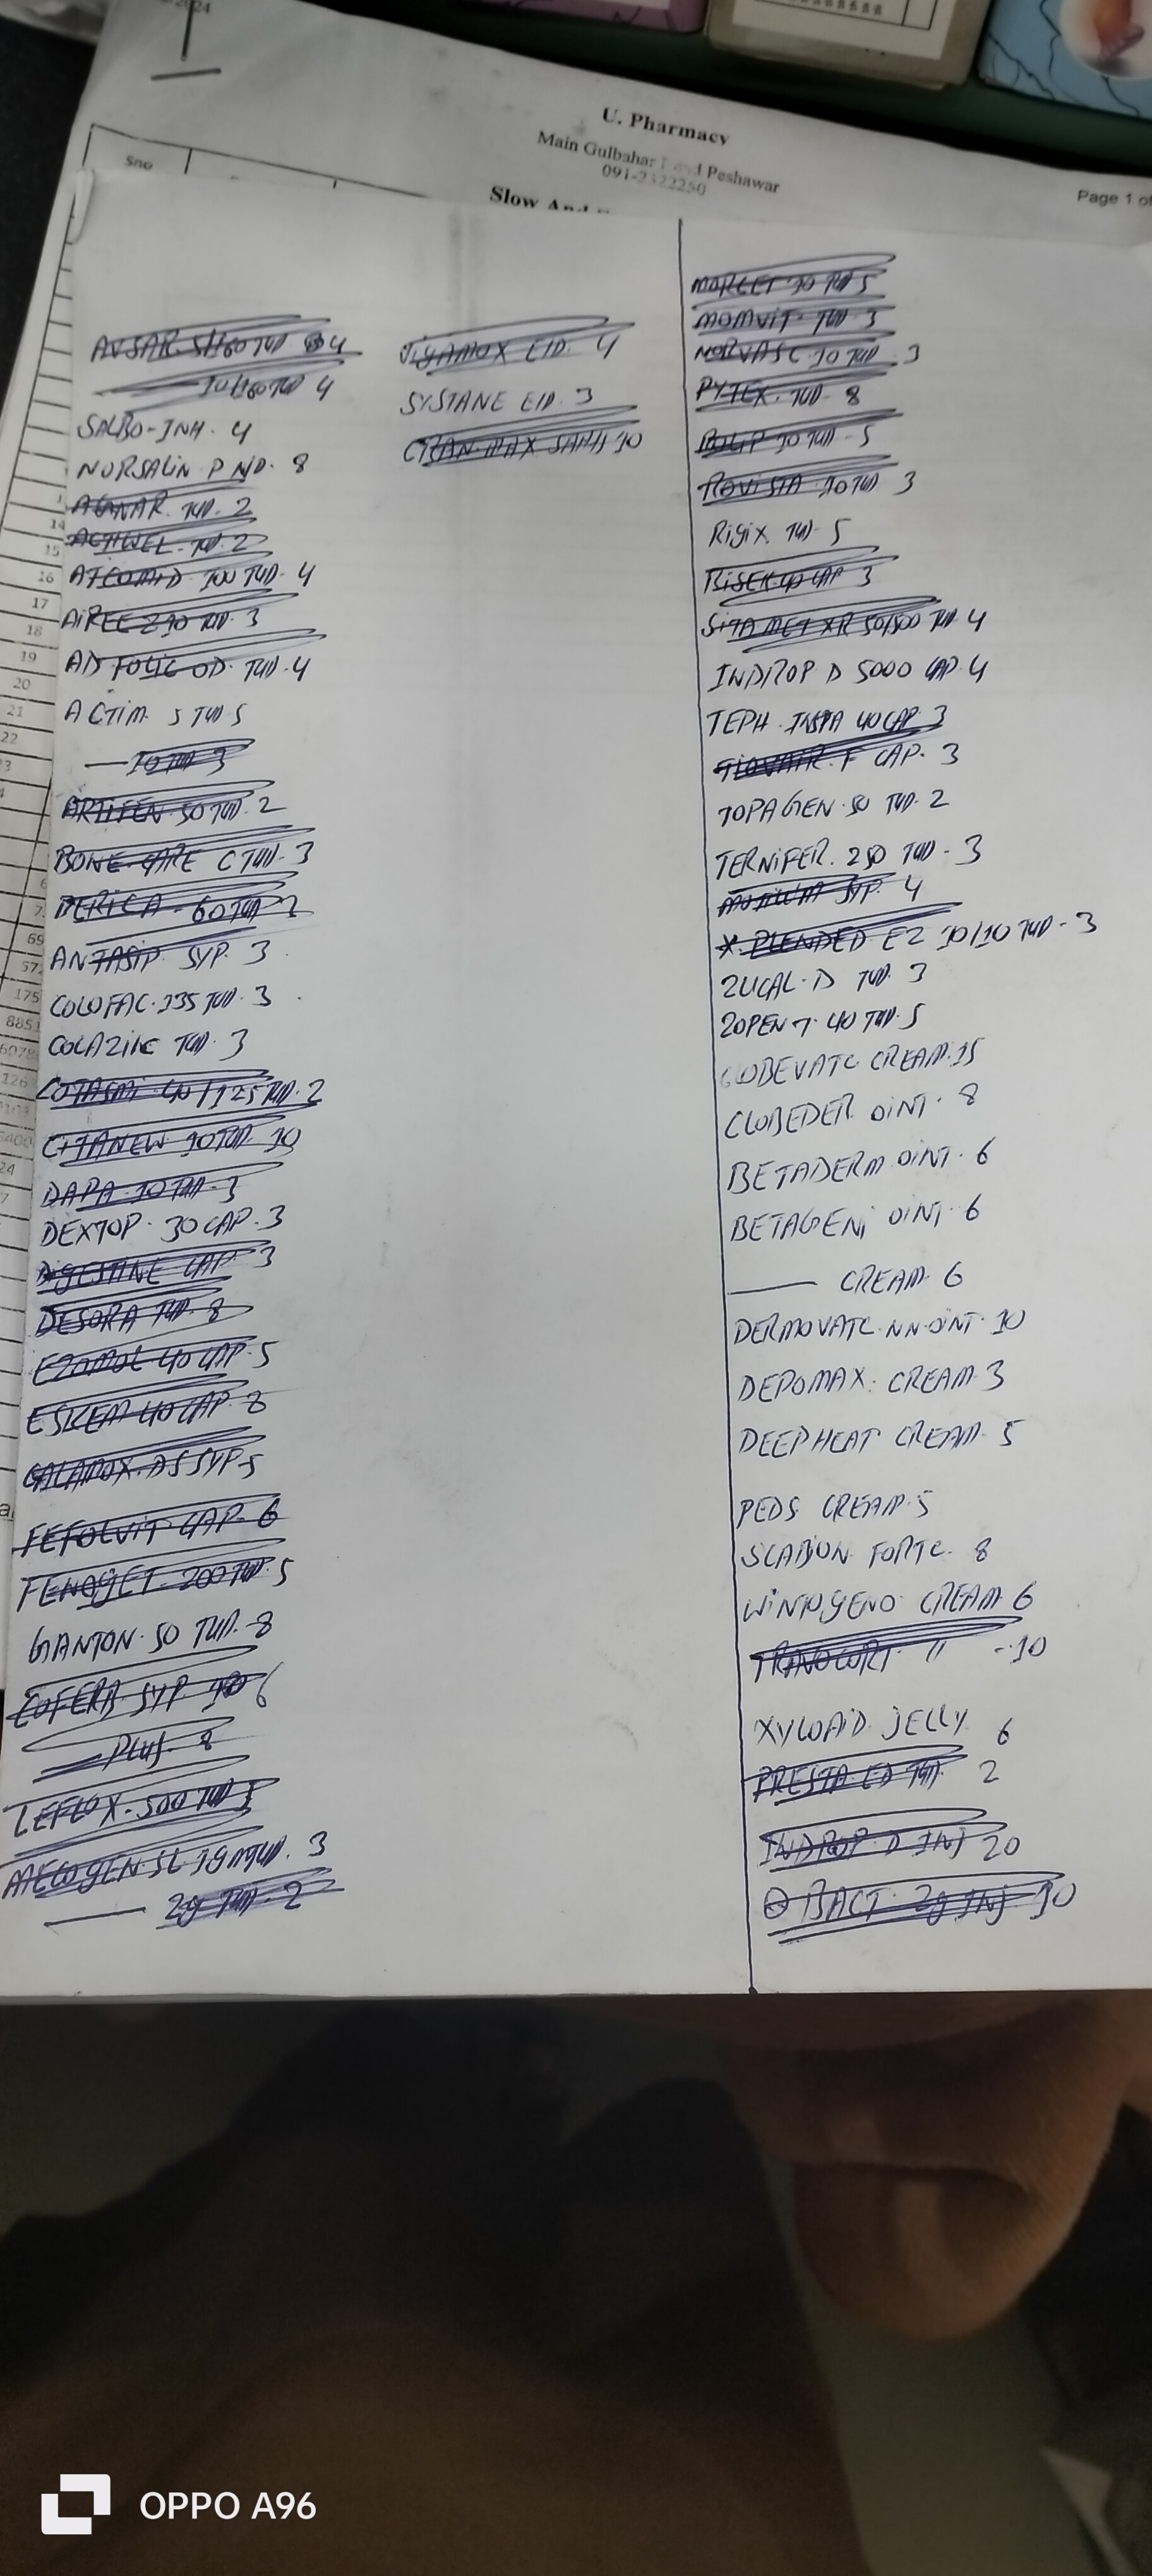 U. Pharmacy
Main Gulbahar Peshawar
Page 1 of
Sno
Slow And
AVSAR 5/160 TAB 4
10/160 TAB 4
SALBO-INH. 4
NORSALIN P N/D. 8
AGNAR. TAB. 2
ACTIWEL. TAB. 2
ATCOMID 100 TAB. 4
AIREEZ 10 TAB. 3
AD FOLIC OD. TAB. 4
ACTIM 5 TAB 5
— 10 TAB 3
ARTIFEN. 50 TAB. 2
BONE-CARE C TAB. 3
60 TAB 2
ANTASIP SYP. 3
COLOFAC. 135 TAB. 3
COLAZINE TAB. 3
40/125 TAB. 2
CITANEW 10 TAB. 10
DAPA 10 TAB 3
DEXTOP. 30 CAP. 3
DIGESTINE CAP 3
DESORA TAB. 8
EZOMOL 40 CAP. 5
ESKEM 40 CAP. 8
DS SYP. 5
FEFOLVIT CAP. 6
FENOGET 200 TAB. 5
GANTON. 50 TAB. 8
COFERB SYP. 6
— PLUS. 8
LEFLOX. 500 TAB 5
MECOGEN SL 1g TAB. 3
— 2g TAB. 2
VIGAMOX E/D. 4
SYSTANE E/D. 3
CRAN-MAX SACH 10
10 TAB 5
MOMVIT TAB 3
NORVASC 10 TAB. 3
PYTEX. TAB. 8
10 TAB 5
ROVISTA 10 TAB 3
RIGIX TAB. 5
RISEK 40 CAP 3
SITAMET XR 50/500 TAB. 4
INDROP D 5000 CAP. 4
TEPH. INSTA 40 CAP. 3
TIOVAIR. F CAP. 3
TOPAGEN. 50 TAB. 2
TERNIFER. 250 TAB. 3
SYP. 4
X. PLENDED EZ 10/10 TAB. 3
ZUCAL. D TAB. 3
ZOPENT. 40 TAB. 5
CLOBEVATE CREAM. 15
CLOBEDERM OINT. 8
BETADERM OINT. 6
BETAGENI OINT. 6
— CREAM. 6
DERMOVATE. NN-OINT. 10
DEPOMAX. CREAM. 3
DEEPHEAT CREAM. 5
PEDS CREAM. 5
SCABION FORTE. 8
WINTOGENO CREAM. 6
TRANOCORT " - 10
XYLOAID JELLY 6
PRESTA ED TAB 2
INDROP. D INJ 20
BACT 2g INJ 10
OPPO A96